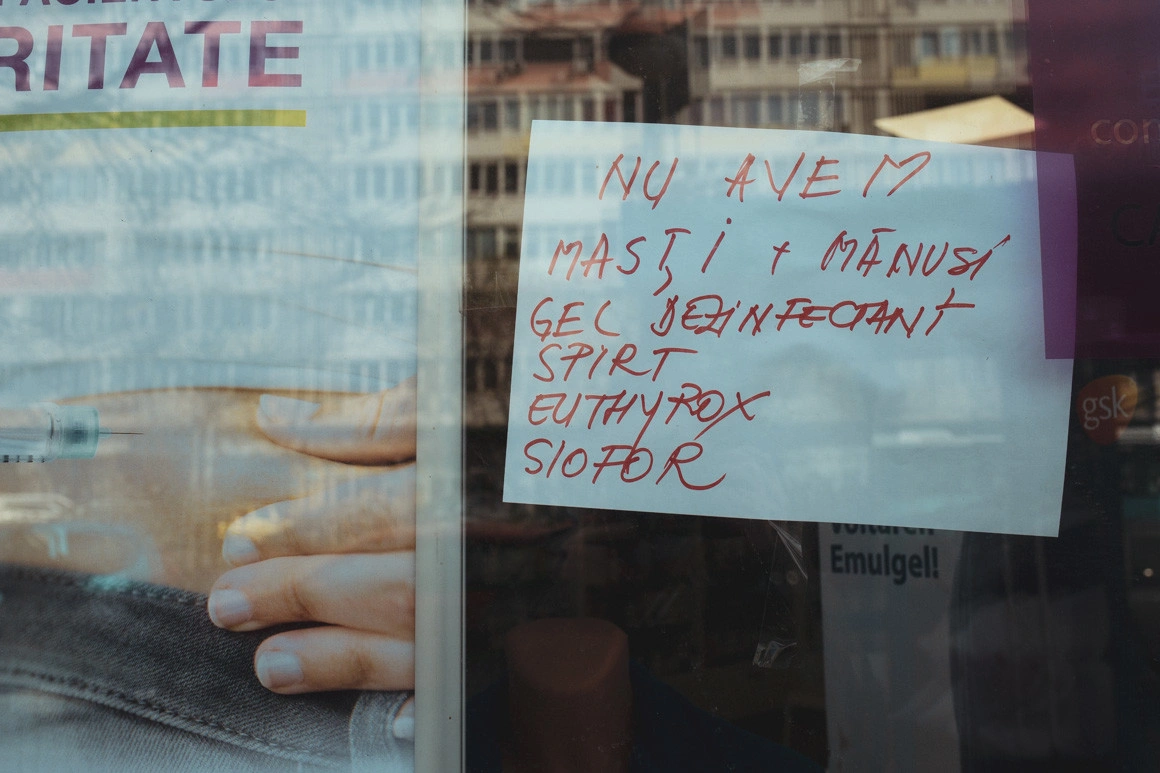 RITATE
NU AVEM
MASȚI + MĂNUSI
GEL DEZINFECTANT
SPIRT
EUTHYROX
SIOFOR
gsk
Emulgel!